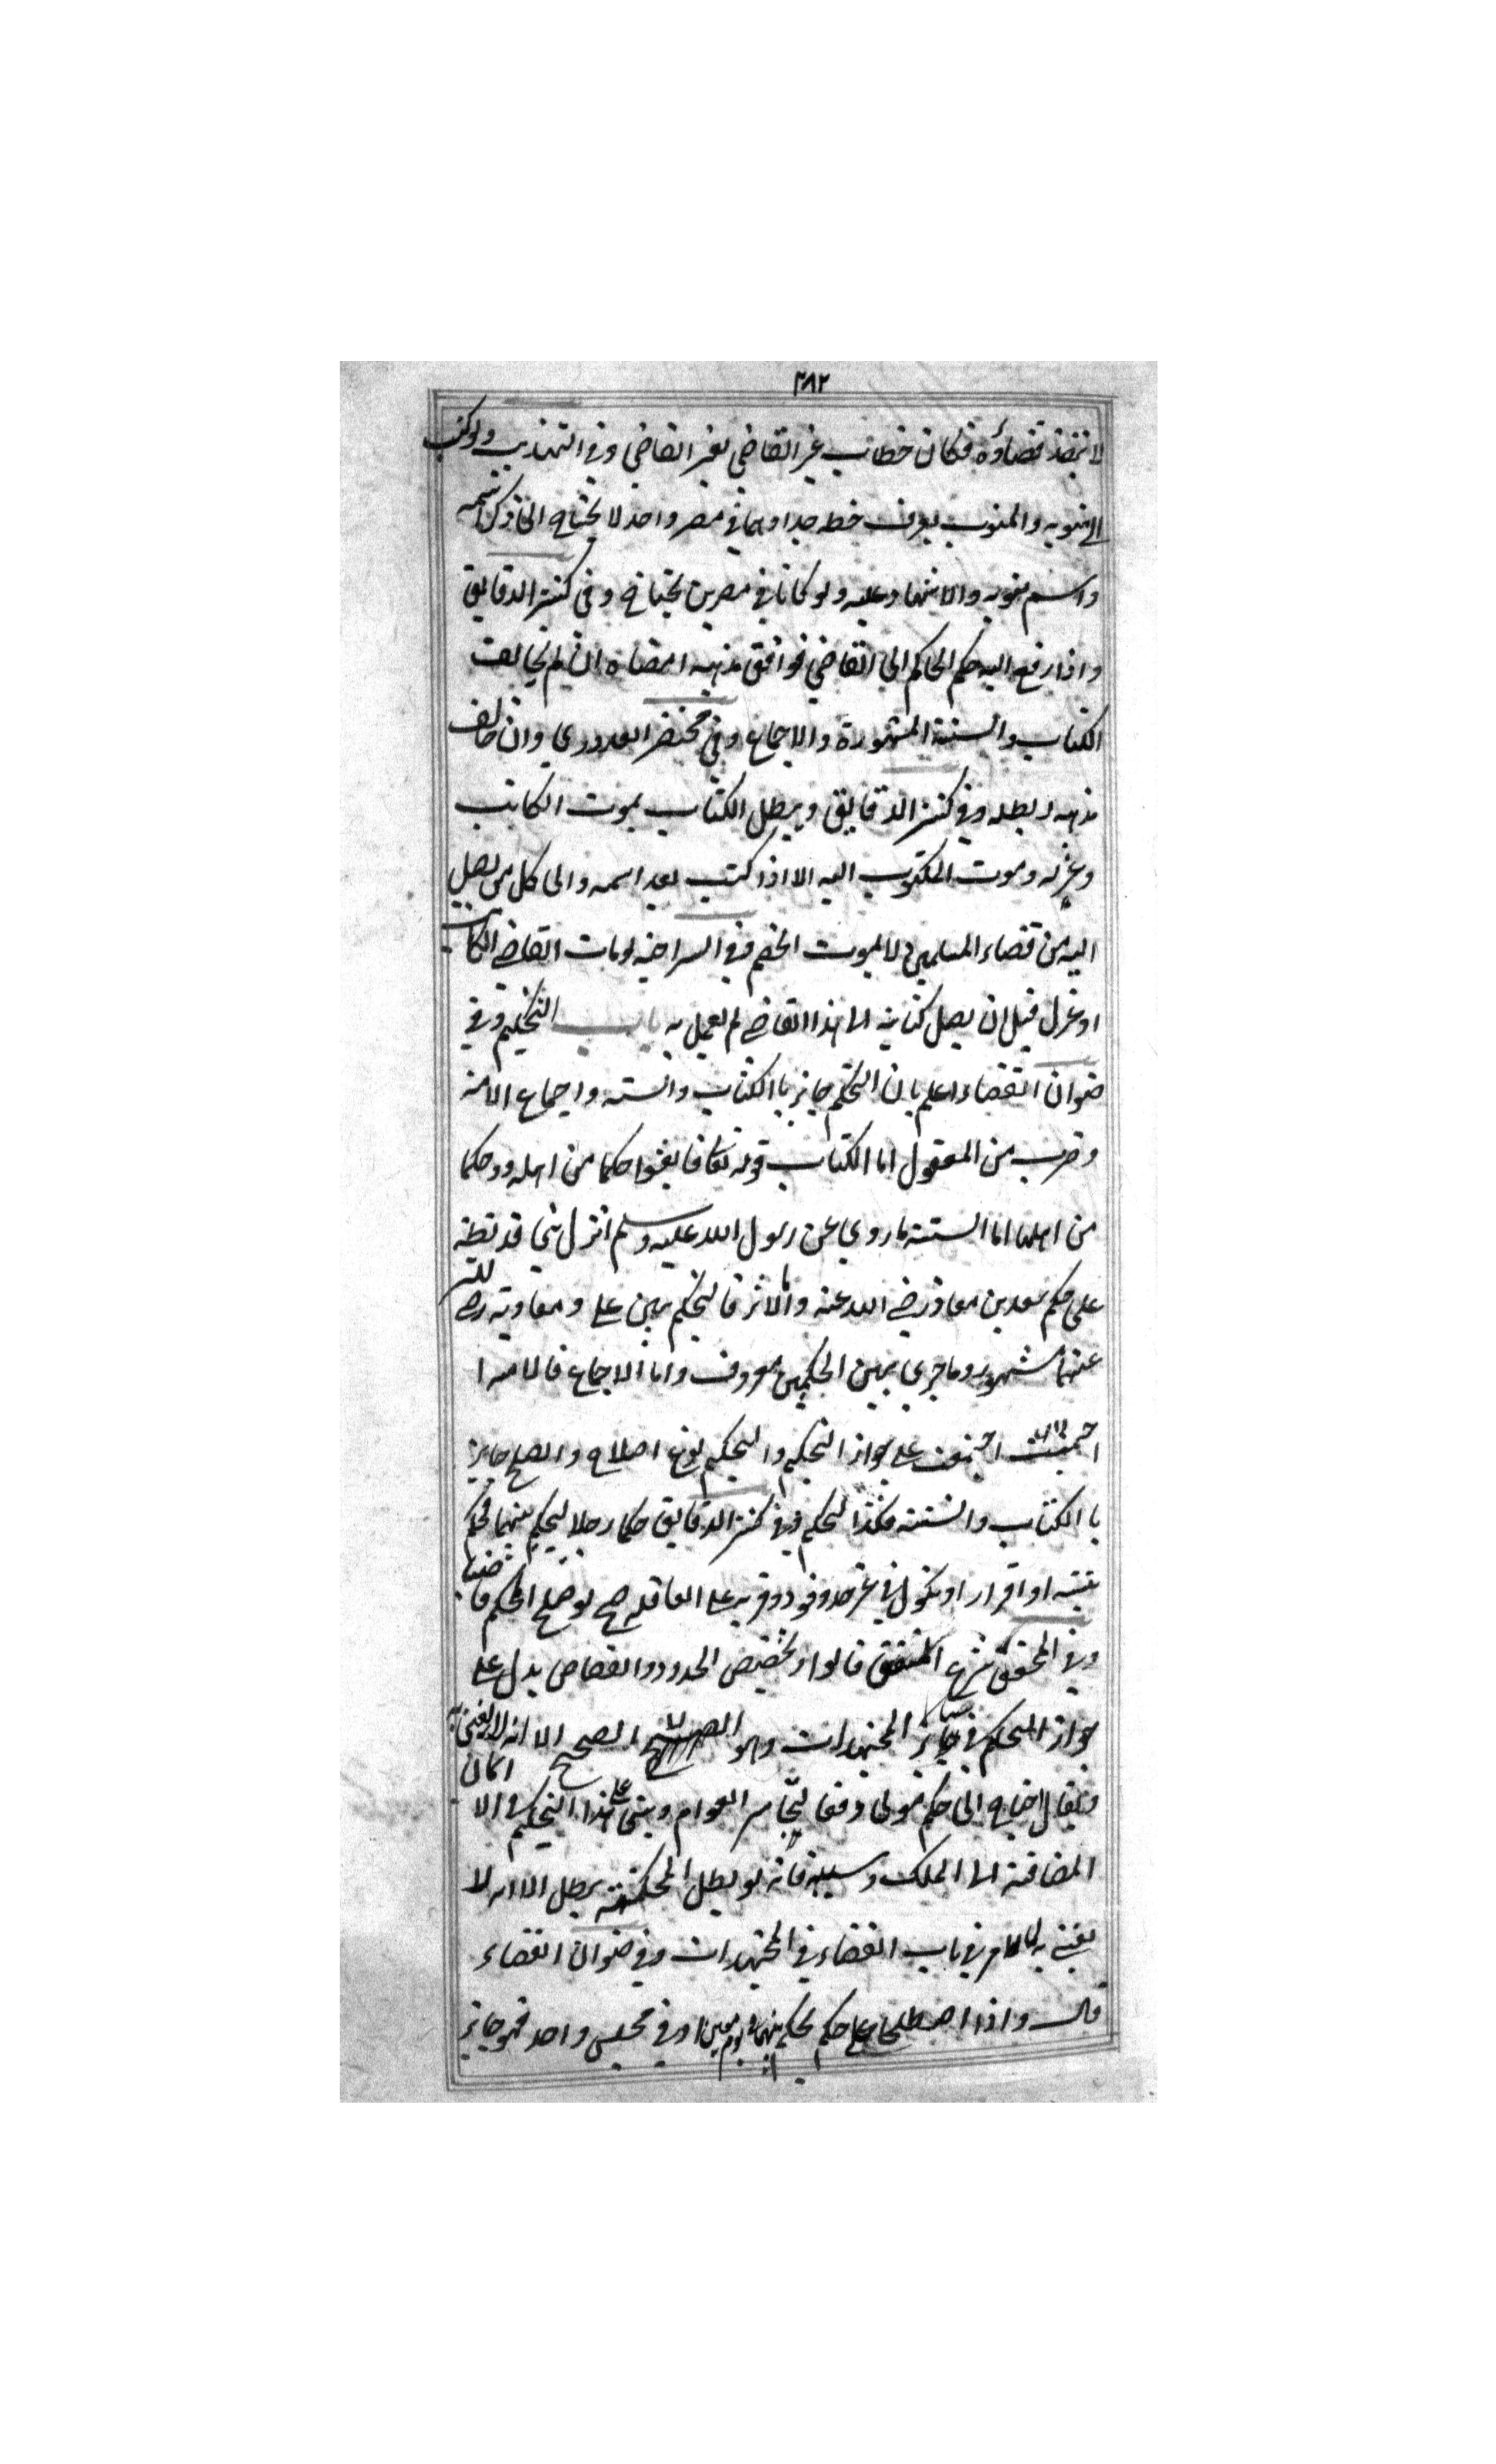 ٣٨٢
لا ينفذ قضاؤه فكان خطاب غير القاضي لغير القاضي وفي التهذيب ولو كتب
الى منوبه والمنوب يعرف خطه جدا وهما في مصر واحد لا يحتاج الى ذكر اسمه
واسم منوبه والاشهاد عليه ولو كانا في مصرين يحتاج وفي كنز الدقايق
واذا رفع اليه حكم الحاكم الى القاضي فوافق مذهبه امضاه ان لم يخالف
الكتاب والسنة المشهورة والاجماع وفي مختصر القدوري وان خالف
مذهبه ابطله وفي كنز الدقايق ويبطل الكتاب بموت الكاتب
وعزله وموت المكتوب اليه الا اذا كتب بعد اسمه والى كل من يصل
اليه من قضاء المسلمين لا بموت الخصم وفي السراجيه لو مات القاضي الكاتب
او عزل قبل ان يصل كتابه الى هذا القاضي لم يعمل به باب التحكيم وفي
صنوان القضاء اعلم بان التحكيم جايز باالكتاب والسنه واجماع الامة
وضرب من المعقول اما الكتاب قوله تعالى فابعثوا حكما من اهله وحكما
من اهلها اما السنة ما روي عن رسول الله عليه وسلم انزل بني قريظة
على حكم سعد بن معاذ رضي الله عنه والاثر فالتحكيم بين علي ومعاوية رضي الله
عنهما مشهور وما جرى بين الحكمين معروف واما الاجماع فالامة ا
اجتمعت على جواز التحكيم والتحكيم نوع اصلاح والصلح جايز
باالكتاب والسنة فكذا التحكيم وفي كنز الدقايق حكما رجلا ليحكم بينهما فحكم
ببينه او اقرار او نكول في غير حد وقود ودية على العاقله صح لو صلح الحكم قاضيا
وفي المحقق شرح المتفق قالوا وتخصيص الحدود والقصاص يدل على
جواز التحكيم في ساير المجتهدات وهو الصحيح الا انه لا يفتى به
ويقال احتاج الى حكم مولى دفعا لتجاسر العوام ويبتنى على هذا التحكيم في الايمان
المضافة الى الملك وسببه فانه لو يبطل المحكم يبطل الا انه لا
يفتى به لما مر في باب القضاء في المجتهدات وفي صنوان القضاء
قال واذا اصطلحا على حكم يحكم بينهما في يوم معين او في مجلس واحد فهو جايز